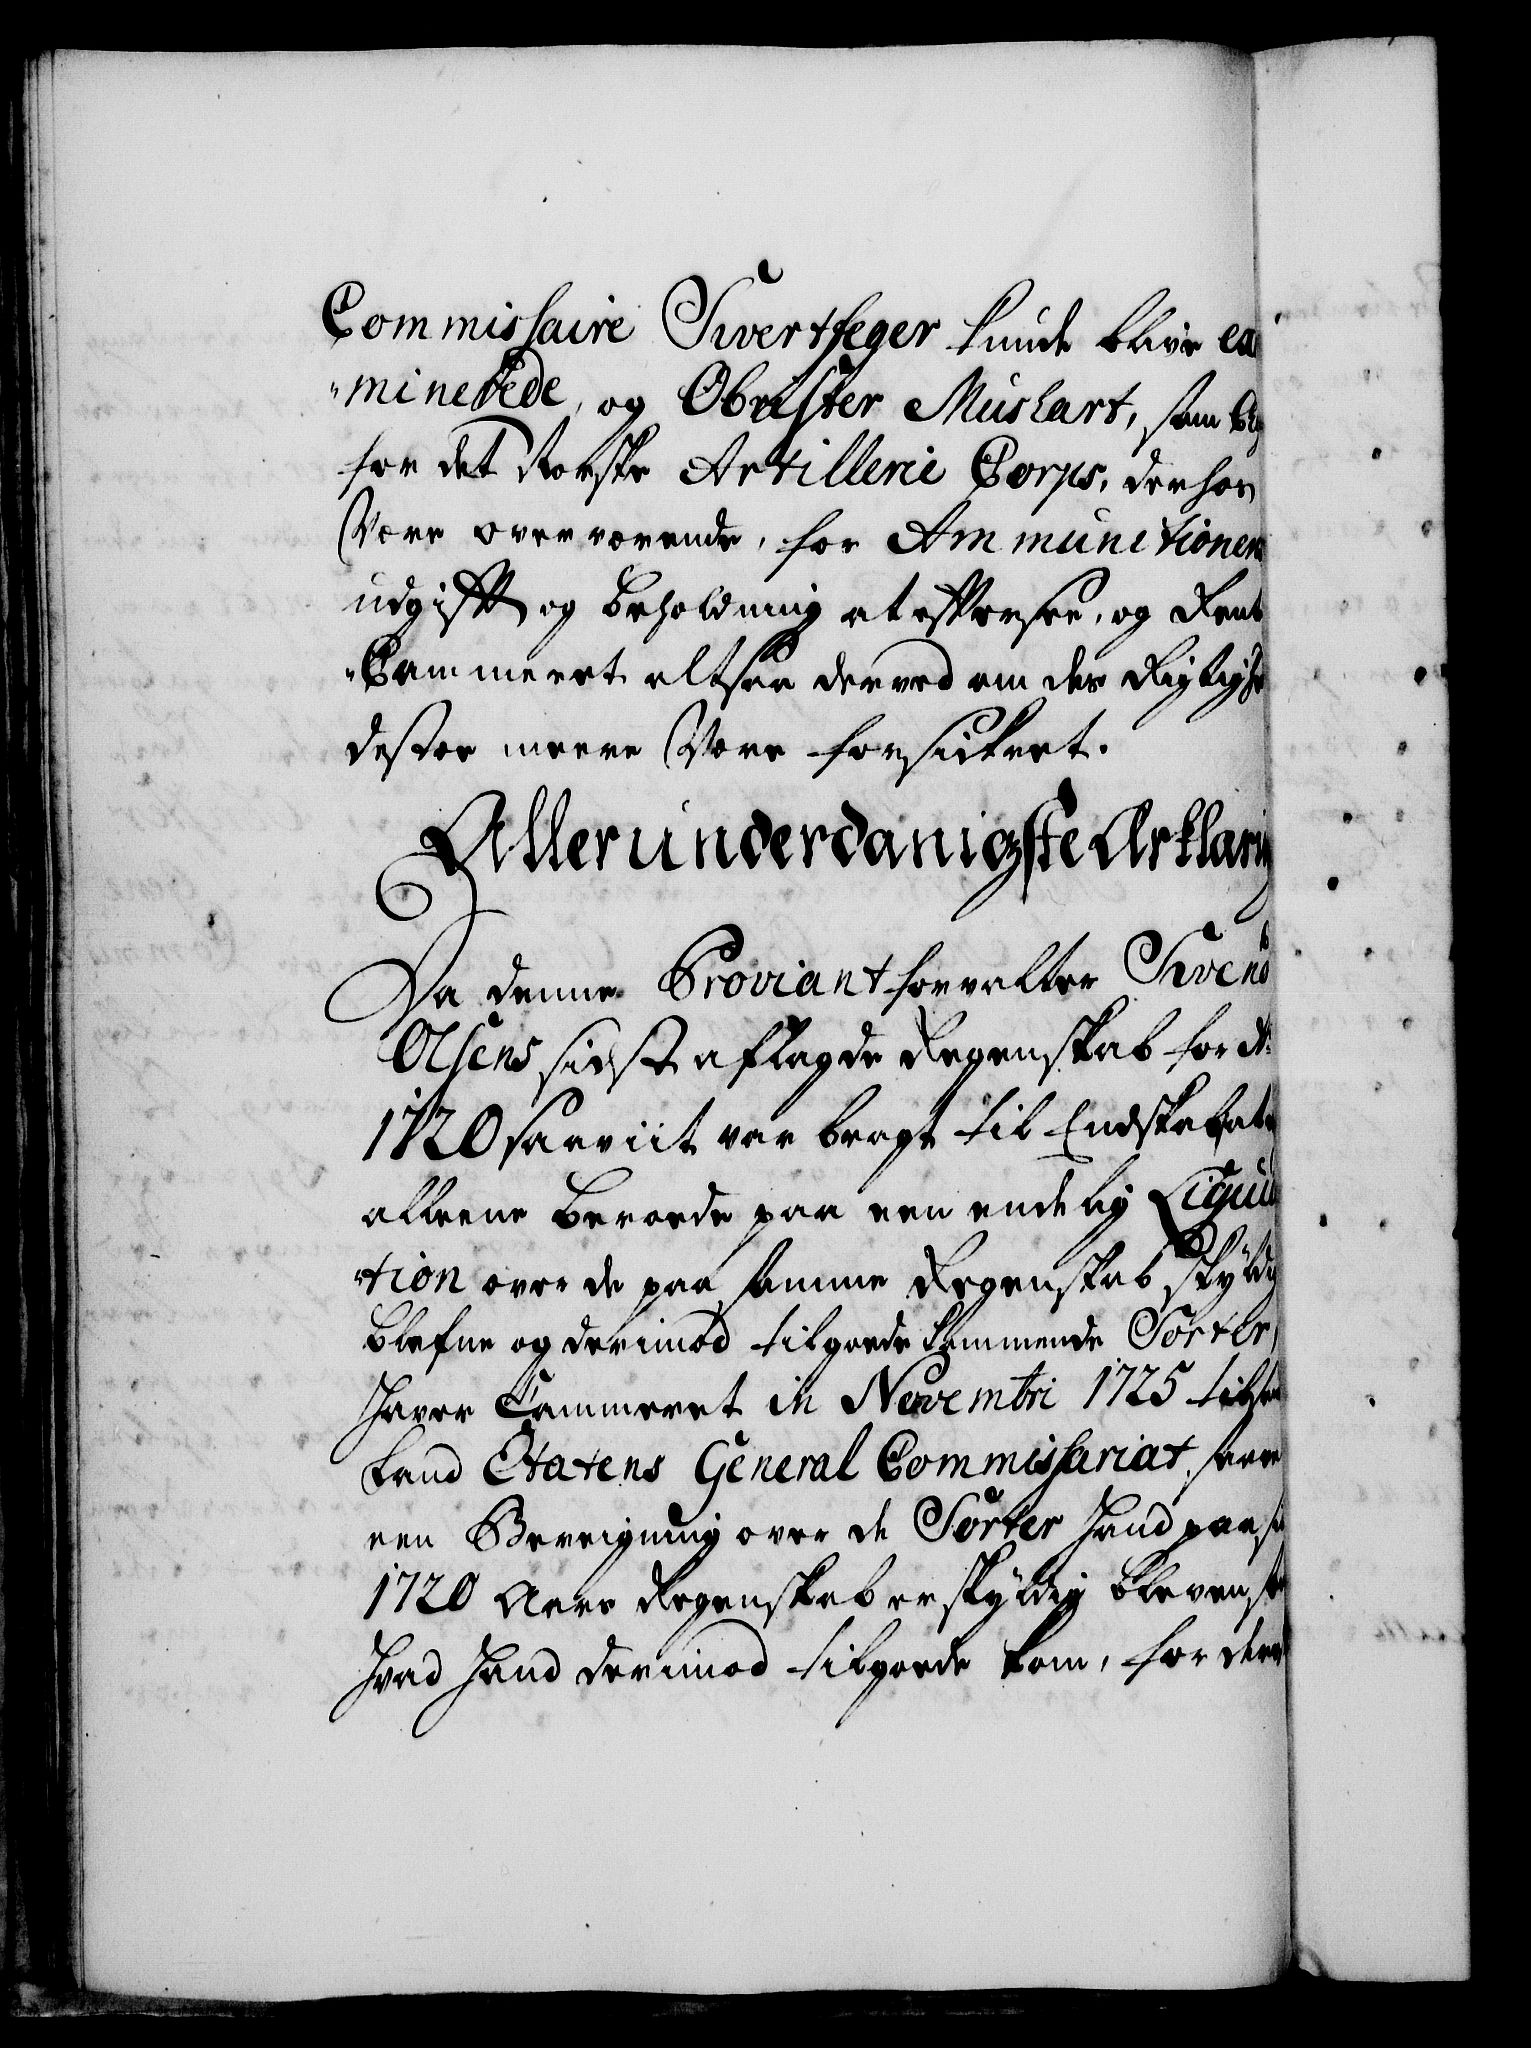 Commissaire Svertfeger kunde blive exa
-minerede, og Obrister Muskart, som
for det Norske Artillerie Corps, derhos
Være overværende, for Ammunitionens
udgift og beholdning at efftersee, og Rente
-Cammeret altsaa derved om des Rigtighed
destoe meere Være forsickret.
Allerunderdanigste Erklæring
Da denne Proviantforvalter Svend
Olsens sidst aflagde Regenskab for A:
1720 saaviit var bragt til Endskab, at
alleene beroede paa een endelig Liquida
-tion over de paa samme Regenskab skyldig
blefne og derimod tilgoede kommende Sorter,
Haver Cammeret in Novembri 1725 tilstillet
Land Etatens General Commissariat, saavel
een Beregning over de Sorter Hand paa sit
1720 Aars Regenskab er skyldig bleven
Hvad Hand derimod tilgoede kom, for